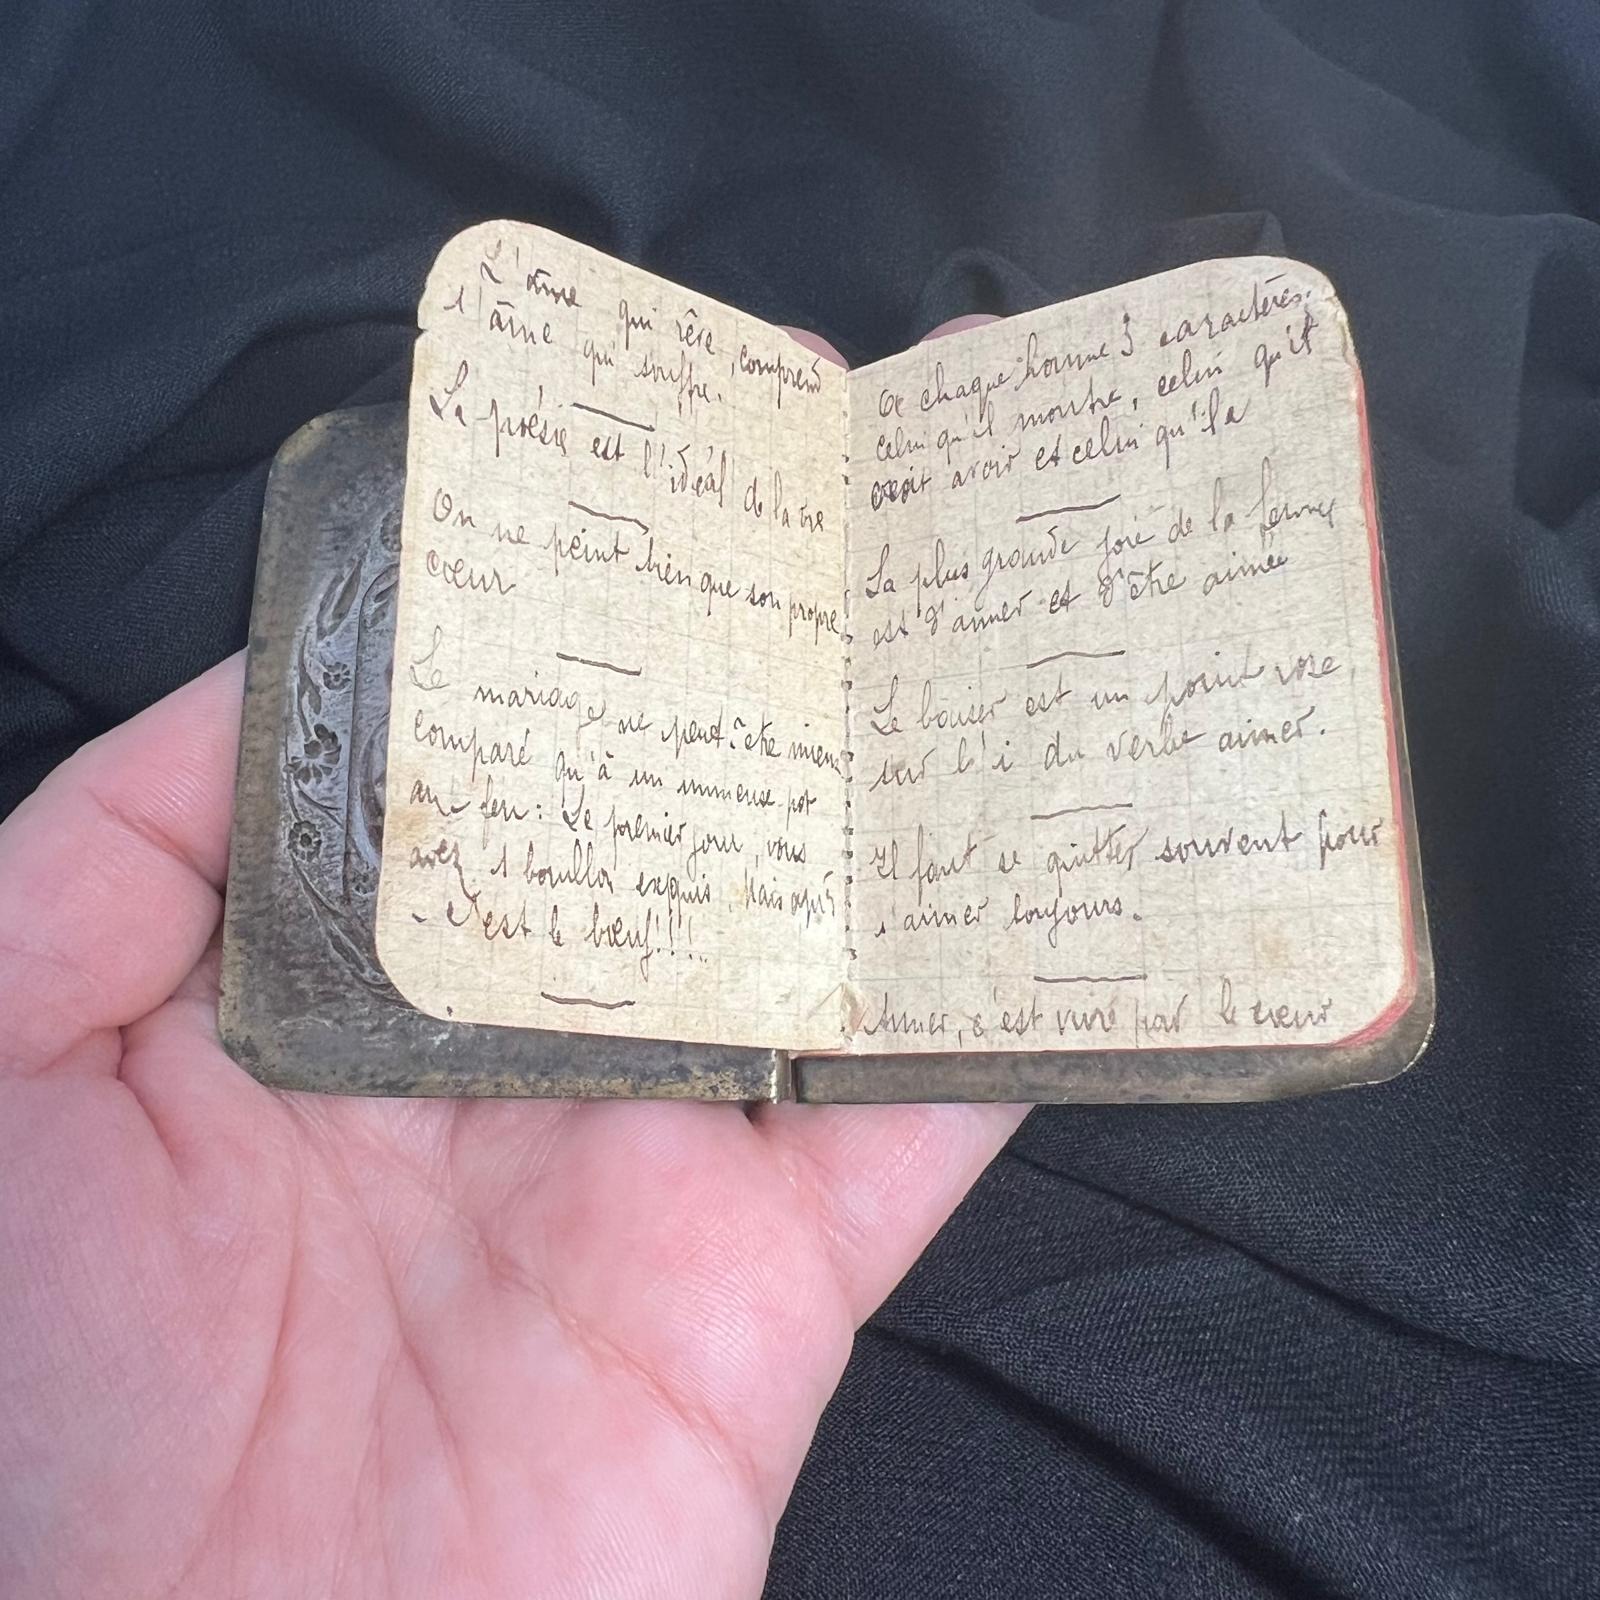 L'âme qui rêve, comprend
l'âme qui souffre.
La poésie est l'idéal de la vie
On ne peint bien que son propre
cœur
Le mariage ne peut être mieux
comparé qu'à un immense pot
au feu : Le premier jour, vous
avez 1 bouillon exquis. Mais après
- c'est le bœuf!!!...
chaque homme 3 caractères.
celui qu'il montre, celui qu'il
croit avoir et celui qu'il a
La plus grande joie de la femme
est d'aimer et d'être aimée
Le baiser est un point rose
sur l'i du verbe aimer.
Il faut se quitter souvent pour
s'aimer toujours.
Aimer, c'est vivre par le cœur